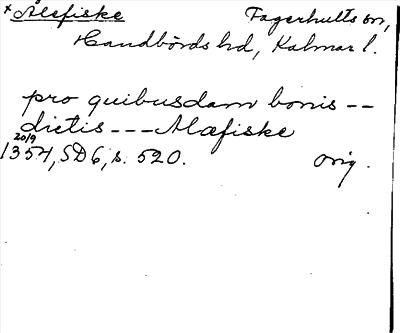 × Ålefiske Fagerhults sn,
Handbörds hd, Kalmar l.
pro quibusdam bonis --
dictis --- Alæfiske
20/9
1354, SD 6, s. 520. orig.